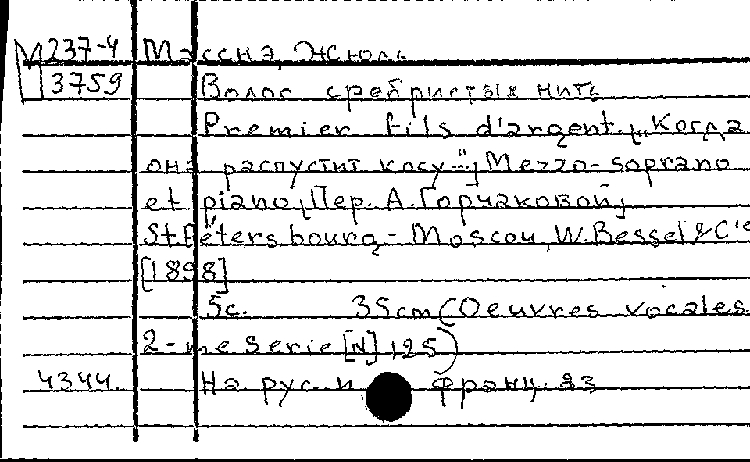 М 237-4 Массна, Жюль
3759 Волос сребристых нить
Premier fils d'argent. „Когда
она распустит косу..." Mezzo-soprano
et piano, Пер. А. Горчаковой,
St.Pétersbourg - Moscou, W. Bessel & Cie
[1898]
5с. 35cm (Oeuvres vocales
2-me Serie [N] 125)
4344. На рус. и франц. яз